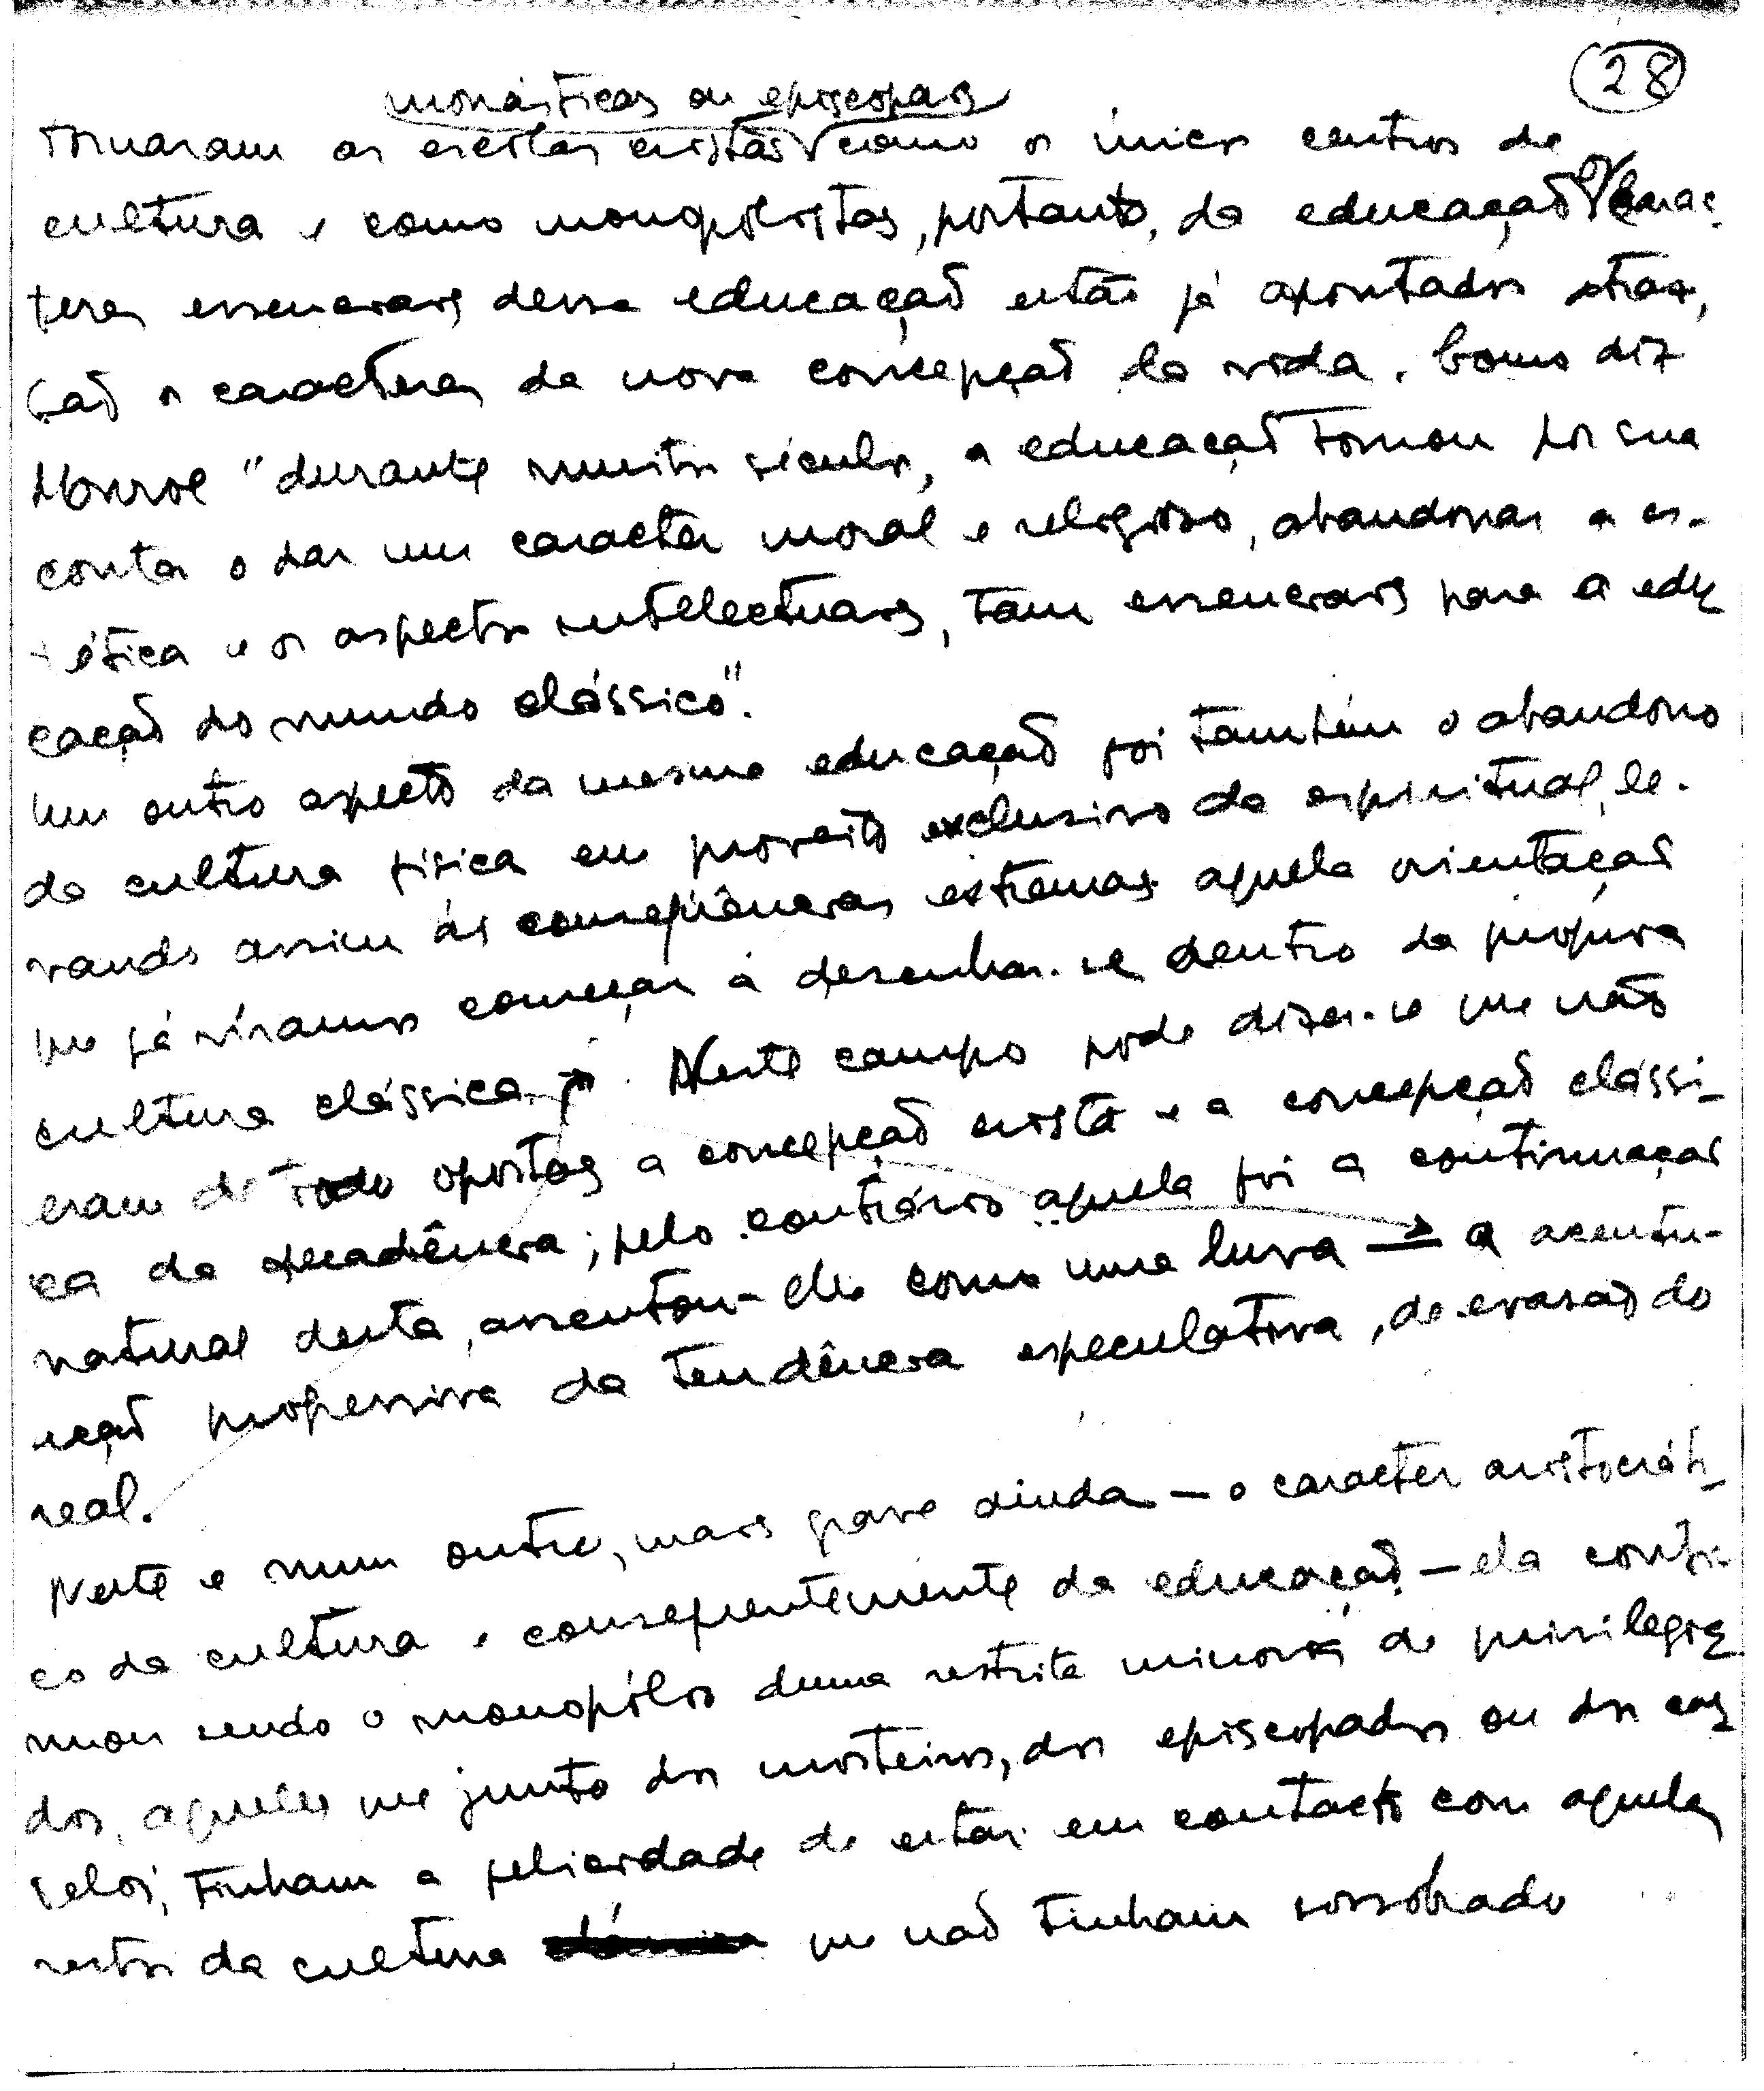 28
monásticas ou episcopais
tornaram as escolas cristãs como os únicos centros de
cultura e como monopolistas, portanto, da educação. Os carac
teres essenciais dessa educação estão já apontados atrás,
são os caracteres da nova concepção da vida. Como diz
Monroe "durante muitos séculos, a educação tomou por sua
conta o dar um caracter moral e religioso, abandonar a es-
tética e os aspectos intelectuais, tam essenciais para a edu
cação do mundo clássico".
Um outro aspecto da mesma educação foi também o abandono
da cultura física em proveito exclusivo da espiritual, le-
vando assim às conseqüências extremas aquela orientação
que já víramos começar a desenhar-se dentro da própria
cultura clássica. Neste campo pode dizer-se que não
eram de todo opostas a concepção cristã e a concepção clássi-
ca da decadência; pelo contrário aquela foi a continuação
natural desta, assentou-lhe como uma luva — a acentu-
ação progressiva da tendência especulativa, de evasão do
real.
Neste e num outro, mais grave ainda — o caracter aristocráti-
co da cultura e consequentemente da educação — ela conti-
nuou sendo o monopólio duma restrita minoria de privilegia
dos, aqueles que junto dos mosteiros, dos episcopados ou dos cas
telos, tinham a felicidade de estar em contacto com aqueles
restos da cultura que não tinham sossobrado